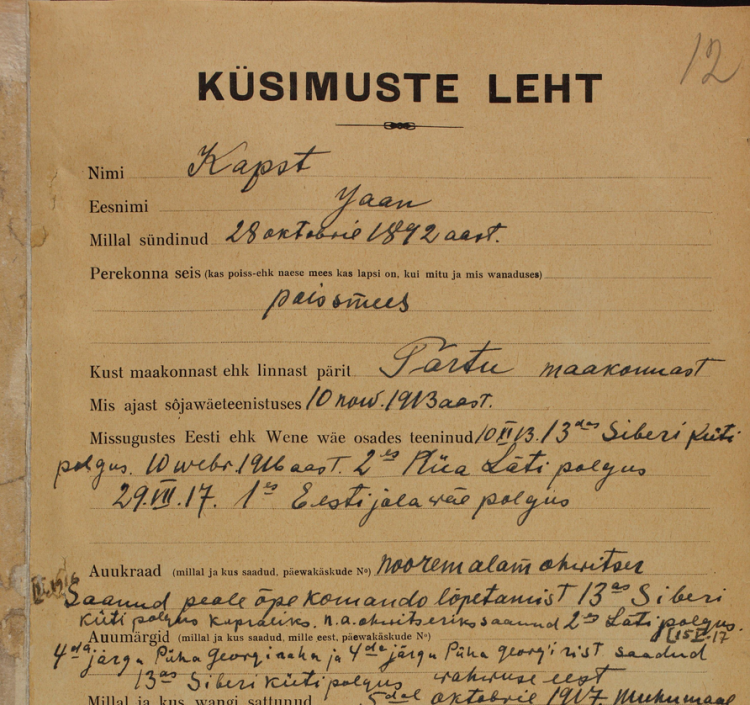 12
KÜSIMUSTE LEHT
Nimi Kapst
Eesnimi Jaan
Millal sündinud 28 oktobrie 1892 aast.
Perekonna seis (kas poiss-ehk naese mees kas lapsi on, kui mitu ja mis wanaduses)
poissmees
Kust maakonnast ehk linnast pärit Tartu maakonnast
Mis ajast sõjawäeteenistuses 10 now. 1913 aast.
Missugustes Eesti ehk Wene wäe osades teeninud 13 Siberi küti
polgus. 10 webr. 1916 aast. 2 Riia Läti polgus
29.VII.17. 1 Eesti jalawäe polgus
Auukraad (millal ja kus saadud, päewakäskude №) nooremalam ohwitser
Saanud peale õpekomando lõpetamist 13 Siberi
küti polgus kapraliks. n.a.ohwitseriks saanud 2 Läti polgus.
Auumärgid (millal ja kus saadud, mille eest, päewakäskude №)
4 järgu Püha Georgi raha ja 4 järgu Püha georgi rist saadud
13 Siberi küti polgus wahwuse eest
Millal ja kus wangi sattunud oktobrie 1917. Muhumaal